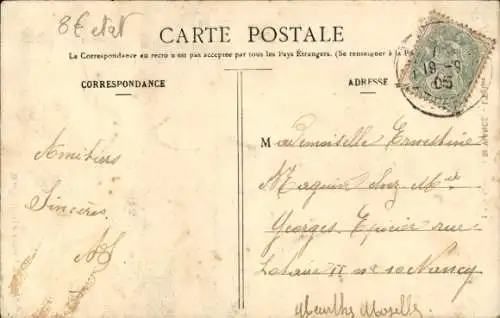 8€ etat
CARTE POSTALE
La Correspondance au recto n'est pas acceptée par tous les Pays Étrangers. (Se renseigner à la P
CORRESPONDANCE
ADRESSE
19 - 9
05
Amitiés
Sincères
AS
Mademoiselle Ernestine
Maguin chez Mr
Georges Epicier rue
Lotaire II no 10 Nancy
Meurthe Moselle